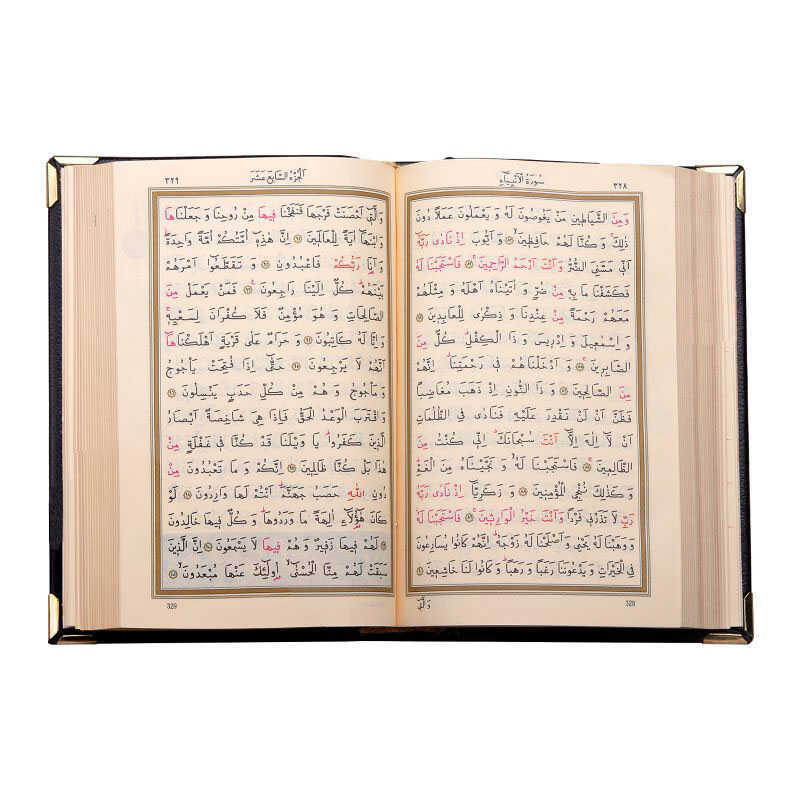 ٣٢٨
سُورَةُ الْاَنْبِيَاءِ
وَمِنَ الشَّيَاطِينِ مَنْ يَغُوصُونَ لَهُ وَ يَعْمَلُونَ عَمَلًا دُونَ
ذٰلِكَ ۚ وَ كُنَّا لَهُمْ حَافِظِينَ ۙ ﴿٨٢﴾ وَ اَيُّوبَ اِذْ نَادٰى رَبَّهُ
اَنّٖى مَسَّنِىَ الضُّرُّ وَاَنْتَ اَرْحَمُ الرَّاحِمِينَ ۚ ﴿٨٣﴾ فَاسْتَجَبْنَا لَهُ
فَكَشَفْنَا مَا بِهٖ مِنْ ضُرٍّ وَ اٰتَيْنَاهُ اَهْلَهُ وَ مِثْلَهُمْ
مَعَهُمْ رَحْمَةً مِنْ عِنْدِنَا وَ ذِكْرٰى لِلْعَابِدِينَ ﴿٨٤﴾
وَ اِسْمٰعِيلَ وَ اِدْرِيسَ وَ ذَا الْكِفْلِ ؕ كُلٌّ مِنَ
الصَّابِرِينَ ۚ ﴿٨٥﴾ وَ اَدْخَلْنَاهُمْ فِى رَحْمَتِنَا ؕ اِنَّهُمْ
مِنَ الصَّالِحِينَ ﴿٨٦﴾ وَ ذَا النُّونِ اِذْ ذَهَبَ مُغَاضِبًا
فَظَنَّ اَنْ لَنْ نَقْدِرَ عَلَيْهِ فَنَادٰى فِى الظُّلُمَاتِ
اَنْ لَٓا اِلٰهَ اِلَّٓا اَنْتَ سُبْحَانَكَ ۗ اِنّٖى كُنْتُ مِنَ
الظَّالِمِينَ ۚ ﴿٨٧﴾ فَاسْتَجَبْنَا لَهُ ۙ وَ نَجَّيْنَاهُ مِنَ الْغَمِّ ؕ
وَ كَذٰلِكَ نُنْجِى الْمُؤْمِنِينَ ﴿٨٨﴾ وَ زَكَرِيَّٓا اِذْ نَادٰى رَبَّهُ
رَبِّ لَا تَذَرْنٖى فَرْدًا وَاَنْتَ خَيْرُ الْوَارِثِينَ ۚ ﴿٨٩﴾ فَاسْتَجَبْنَا لَهُ
وَ وَهَبْنَا لَهُ يَحْيٰى وَ اَصْلَحْنَا لَهُ زَوْجَهُ ؕ اِنَّهُمْ كَانُوا يُسَارِعُونَ
فِى الْخَيْرَاتِ وَ يَدْعُونَنَا رَغَبًا وَ رَهَبًا ؕ وَ كَانُوا لَنَا خَاشِعِينَ ﴿٩٠﴾
328
وَالَّتٖٓى
الْجُزْءُ السَّابِعَ عَشَرَ
٣٢٩
وَالَّتٖٓى اَحْصَنَتْ فَرْجَهَا فَنَفَخْنَا فِيهَا مِنْ رُوحِنَا وَ جَعَلْنَاهَا
وَابْنَهَٓا اٰيَةً لِلْعَالَمِينَ ﴿٩١﴾ اِنَّ هٰذِهٖٓ اُمَّتُكُمْ اُمَّةً وَاحِدَةً
وَاَنَا رَبُّكُمْ فَاعْبُدُونِ ﴿٩٢﴾ وَ تَقَطَّعُٓوا اَمْرَهُمْ
بَيْنَهُمْ ؕ كُلٌّ اِلَيْنَا رَاجِعُونَ ۟ ﴿٩٣﴾ فَمَنْ يَعْمَلْ مِنَ
الصَّالِحَاتِ وَ هُوَ مُؤْمِنٌ فَلَا كُفْرَانَ لِسَعْيِهٖ ۚ
وَاِنَّا لَهُ كَاتِبُونَ ﴿٩٤﴾ وَ حَرَامٌ عَلٰى قَرْيَةٍ اَهْلَكْنَاهَٓا
اَنَّهُمْ لَا يَرْجِعُونَ ﴿٩٥﴾ حَتّٰٓى اِذَا فُتِحَتْ يَاْجُوجُ
وَ مَاْجُوجُ وَ هُمْ مِنْ كُلِّ حَدَبٍ يَنْسِلُونَ ﴿٩٦﴾
وَاقْتَرَبَ الْوَعْدُ الْحَقُّ فَاِذَا هِىَ شَاخِصَةٌ اَبْصَارُ
الَّذِينَ كَفَرُوا ؕ يَا وَيْلَنَا قَدْ كُنَّا فِى غَفْلَةٍ مِنْ
هٰذَا بَلْ كُنَّا ظَالِمِينَ ﴿٩٧﴾ اِنَّكُمْ وَ مَا تَعْبُدُونَ مِنْ
دُونِ اللّٰهِ حَصَبُ جَهَنَّمَ ؕ اَنْتُمْ لَهَا وَارِدُونَ ﴿٩٨﴾ لَوْ
كَانَ هٰٓؤُلَٓاءِ اٰلِهَةً مَا وَرَدُوهَا ؕ وَ كُلٌّ فِيهَا خَالِدُونَ
﴿٩٩﴾ لَهُمْ فِيهَا زَفِيرٌ وَ هُمْ فِيهَا لَا يَسْمَعُونَ ﴿١٠٠﴾ اِنَّ الَّذِينَ
سَبَقَتْ لَهُمْ مِنَّا الْحُسْنٰٓى ۙ اُو۬لٰٓئِكَ عَنْهَا مُبْعَدُونَ ۙ ﴿١٠١﴾
329